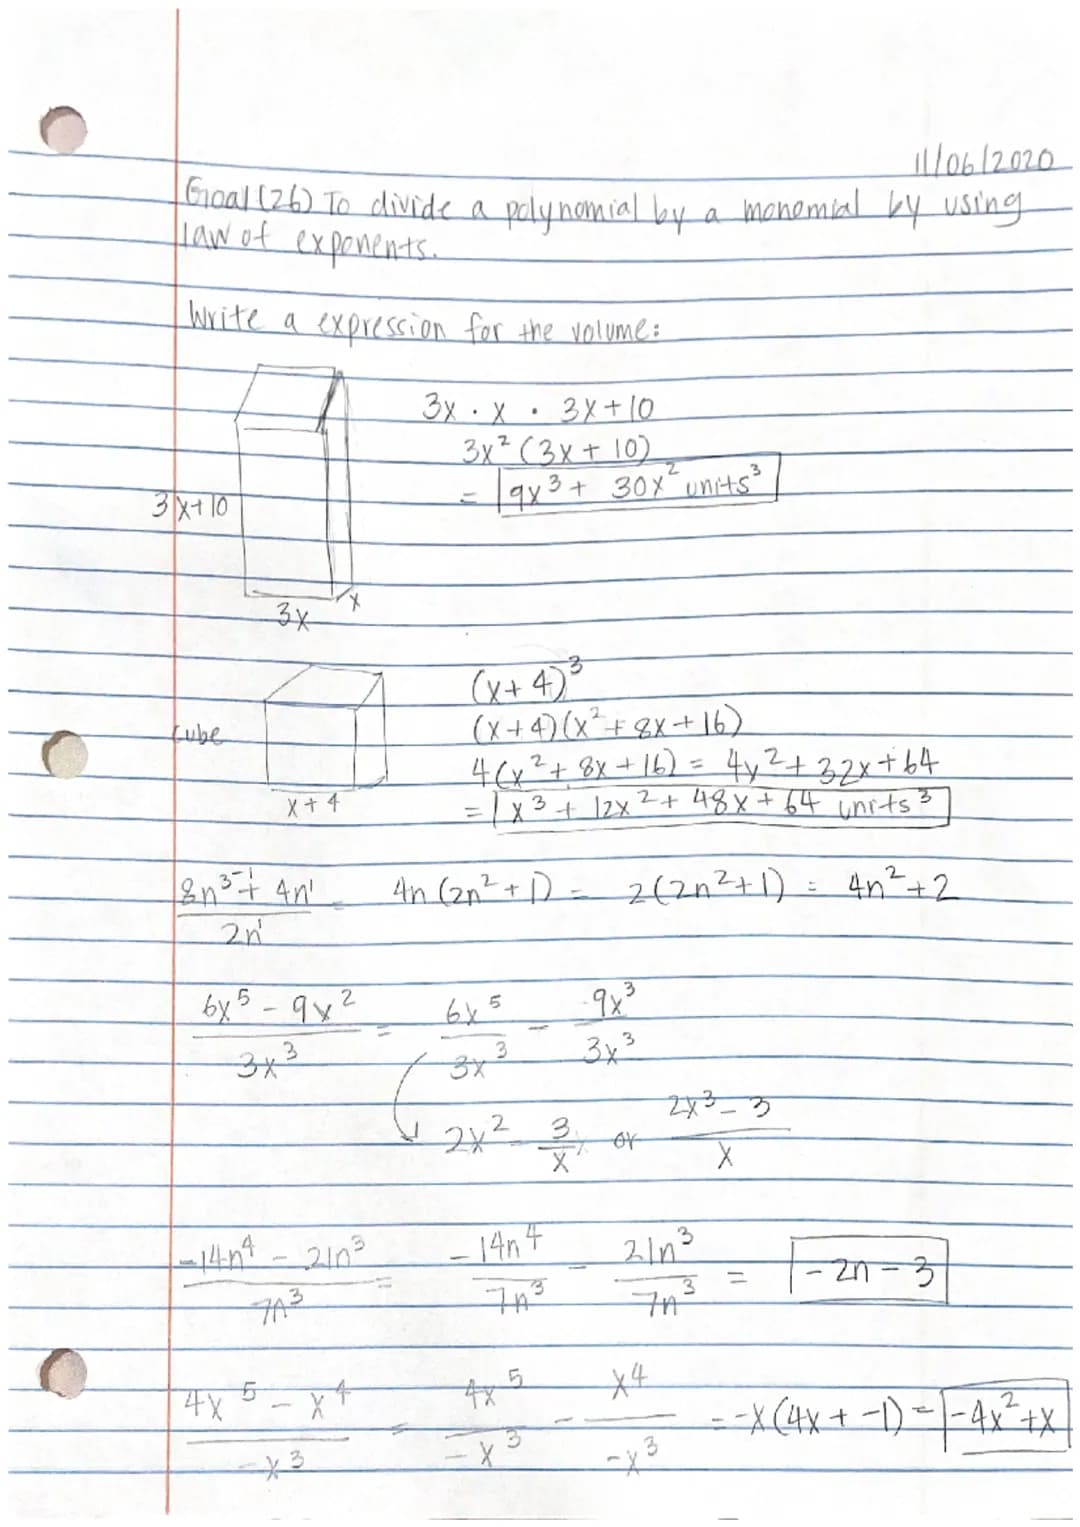 11/06/2020
Goal (26) To divide a polynomial by a monomial by using
law of exponents.
Write a expression for the volume:
3x · x · 3x+10
3x² (3x + 10)
= 9x³ + 30x² units³
3x+10
3x
x
(x+4)³
(x+4)(x²+8x+16)
cube
4(x²+8x+16) = 4y²+32x+64
x+4
= x³ + 12x² + 48x + 64 units³
8n³⁻¹ + 4n¹ = 4n(2n²+1) = 2(2n²+1) = 4n²+2
2n¹
6x⁵ - 9x² = 6x⁵ - 9x³
3x³ 3x³ 3x³
2x² - 3/x or 2x³ - 3
x
-14n⁴ - 21n³ = -14n⁴ - 21n³ = -2n - 3
7n³ 7n³ 7n³
4x⁵ - x⁴ = 4x⁵ - x⁴ = -x(4x + -1) = -4x²+x
-x³ -x³ -x³